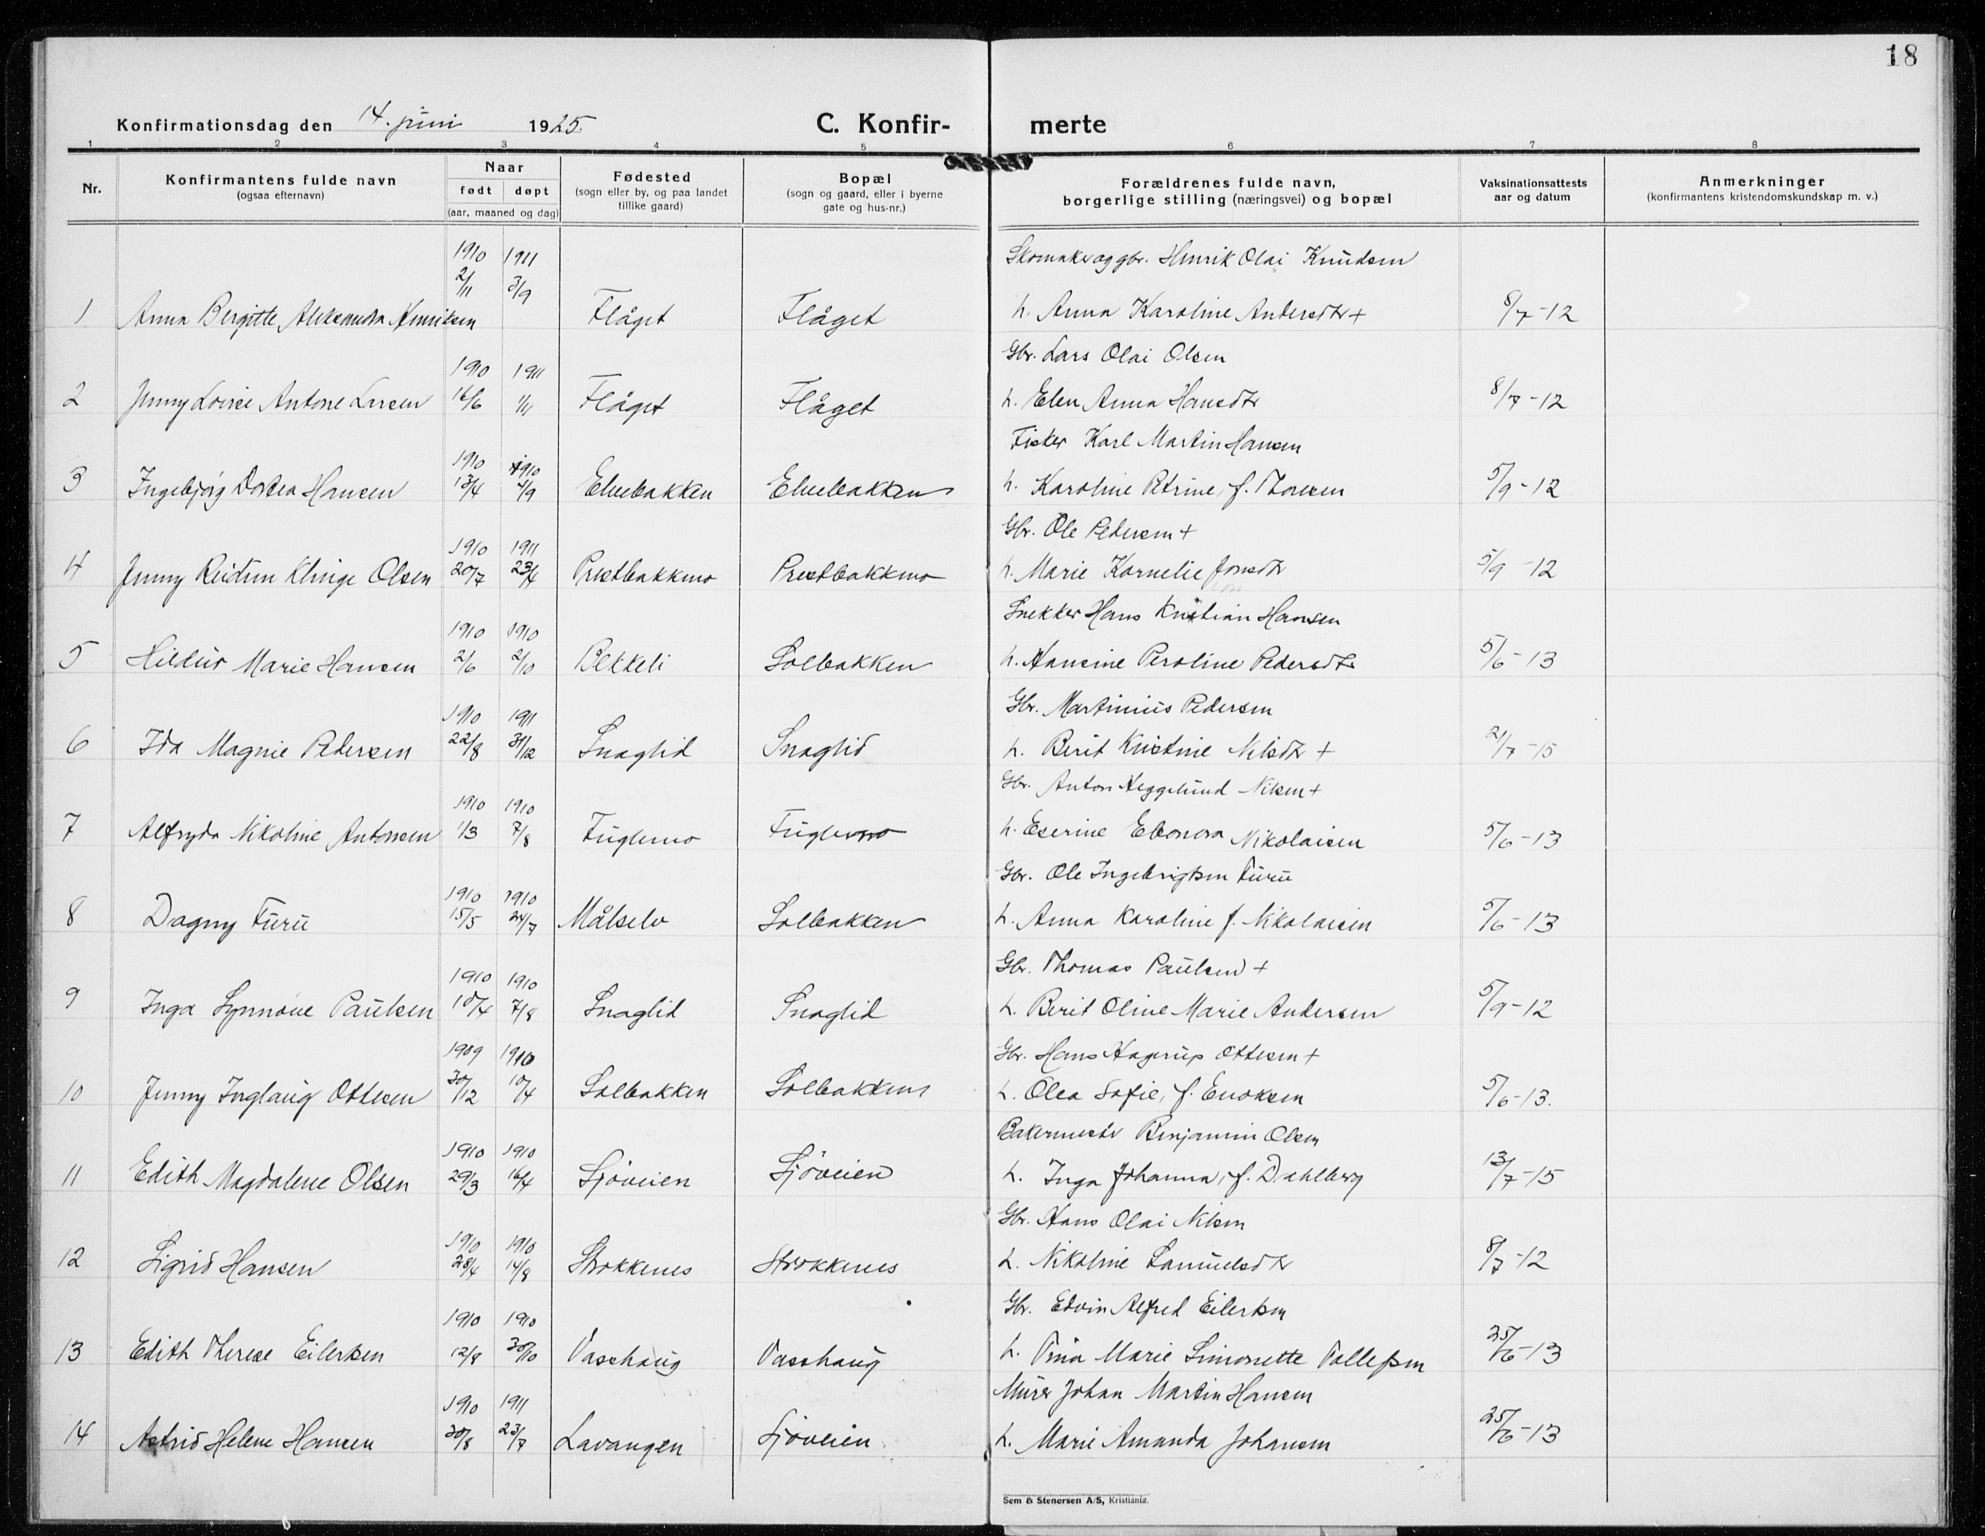 18
Konfirmationsdag den 14. juni 1925. C. Konfir- merte
1 2 3 4 5 6 7 8
Nr. Konfirmantens fulde navn (ogsaa efternavn) Naar født døpt (aar, maaned og dag) Fødested (sogn eller by, og paa landet tillike gaard) Bopæl (sogn og gaard, eller i byerne gate og hus-nr.) Forældrenes fulde navn, borgerlige stilling (næringsvei) og bopæl Vaksinationsattests aar og datum Anmerkninger (konfirmantens kristendomskundskap m. v.)
1910 1911 Skomaker og gbr. Henrik Olai Knudsen
2/11 3/9
1 Anna Bergitte Aleksandra Henriksen Flåget Flåget h. Anna Karoline Andersdtr + 8/7-12
1910 1911 Gbr. Lars Olai Olsen
2 Jenny Lovise Antone Larsen 16/6 1/11 Flåget Flåget h. Elen Anna Hansdtr 8/7-12
1910 1910 Fisker Karl Martin Hansen
3 Ingebjørg Dortea Hansen 13/4 4/9 Elvebakken Elvebakken h. Karoline Petrine, f. Thoresen 5/9-12
1910 1911 Gbr. Ole Pedersen +
4 Jenny Reidun Klinge Olsen 20/7 23/4 Prestbakkmo Prestbakkmo h. Marie Kornelie Jonsdtr 5/9-12
1910 1910 Snekker Hans Kristian Hansen
5 Hildur Marie Hansen 2/6 2/10 Bekkeli Solbakken h. Hansine Peroline Pedersdtr 5/6-13
1910 1911 Gbr. Martinius Pedersen
6 Ida Magnie Pedersen 22/8 31/12 Snaglid Snaglid h. Berit Kristine Nilsdtr + 21/7-15
1910 1910 Gbr. Anton Heggelund Nilsen +
7 Alfryda Nikoline Antonsen 1/3 7/8 Fuglemo Fuglemo h. Eserine Eleonora Nikolaisen 5/6-13
1910 1910 Gbr. Ole Ingebrigtsen Furu
8 Dagny Furu 15/5 24/7 Målselv Solbakken h. Anna Karoline f. Nikolaisen 5/6-13
1910 1910 Gbr. Thomas Paulsen +
9 Inga Synnøve Paulsen 10/4 7/8 Snaglid Snaglid h. Berit Oline Marie Andersen 5/9-12
1909 1910 Gbr. Hans Hagerup Ottesen +
10 Jenny Inglaug Ottesen 30/12 10/4 Solbakken Solbakken h. Olea Sofie, f. Enoksen 5/6-13.
1910 1910 Bakermester Benjamin Olsen
11 Edith Magdalene Olsen 29/3 16/4 Sjøveien Sjøveien h. Inga Johanna, f. Dahlberg 13/7-15
1910 1910 Gbr. Hans Olai Nilsen
12 Sigrid Hansen 28/4 14/8 Strokkenes Strokkenes h. Nikoline Samuelsdtr 8/7-12
1910 1910 Gbr. Edvin Alfred Eilertsen
13 Edith Therese Eilertsen 12/8 30/10 Vasshaug Vasshaug h. Tina Marie Simonette Tollefsen 25/6-13
1910 1911 Murer Johan Martin Hansen
14 Astrid Helene Hansen 30/8 23/7 Lavangen Sjøveien h. Marie Amanda Johansen 25/6-13
Sem & Stenersen A/S, Kristiania.